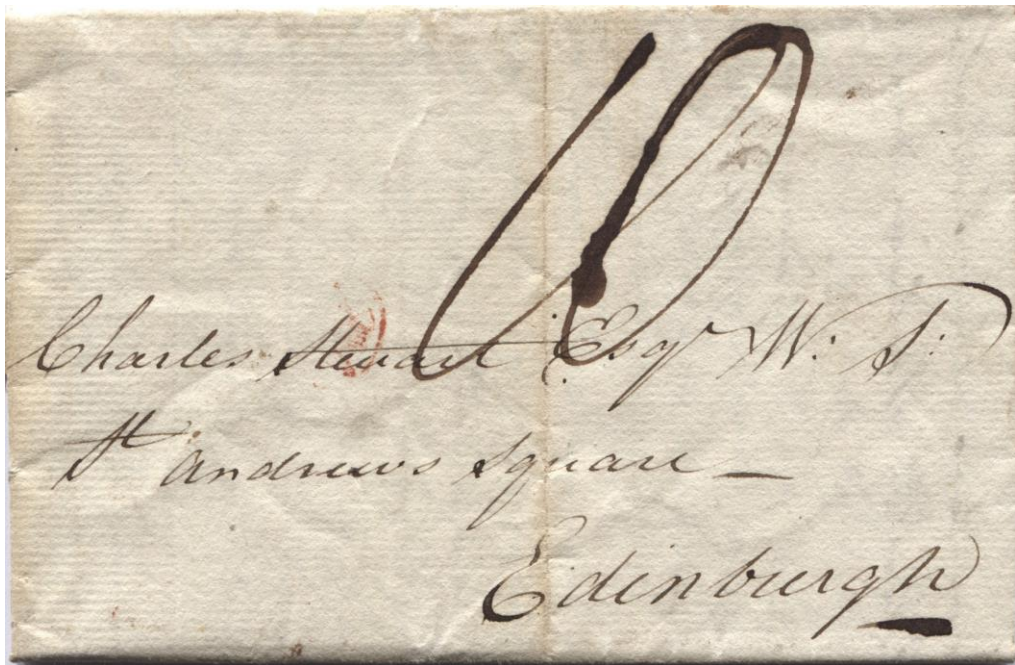 10
Charles Steuart Esqr W: S:
St Andrews Square —
Edinburgh